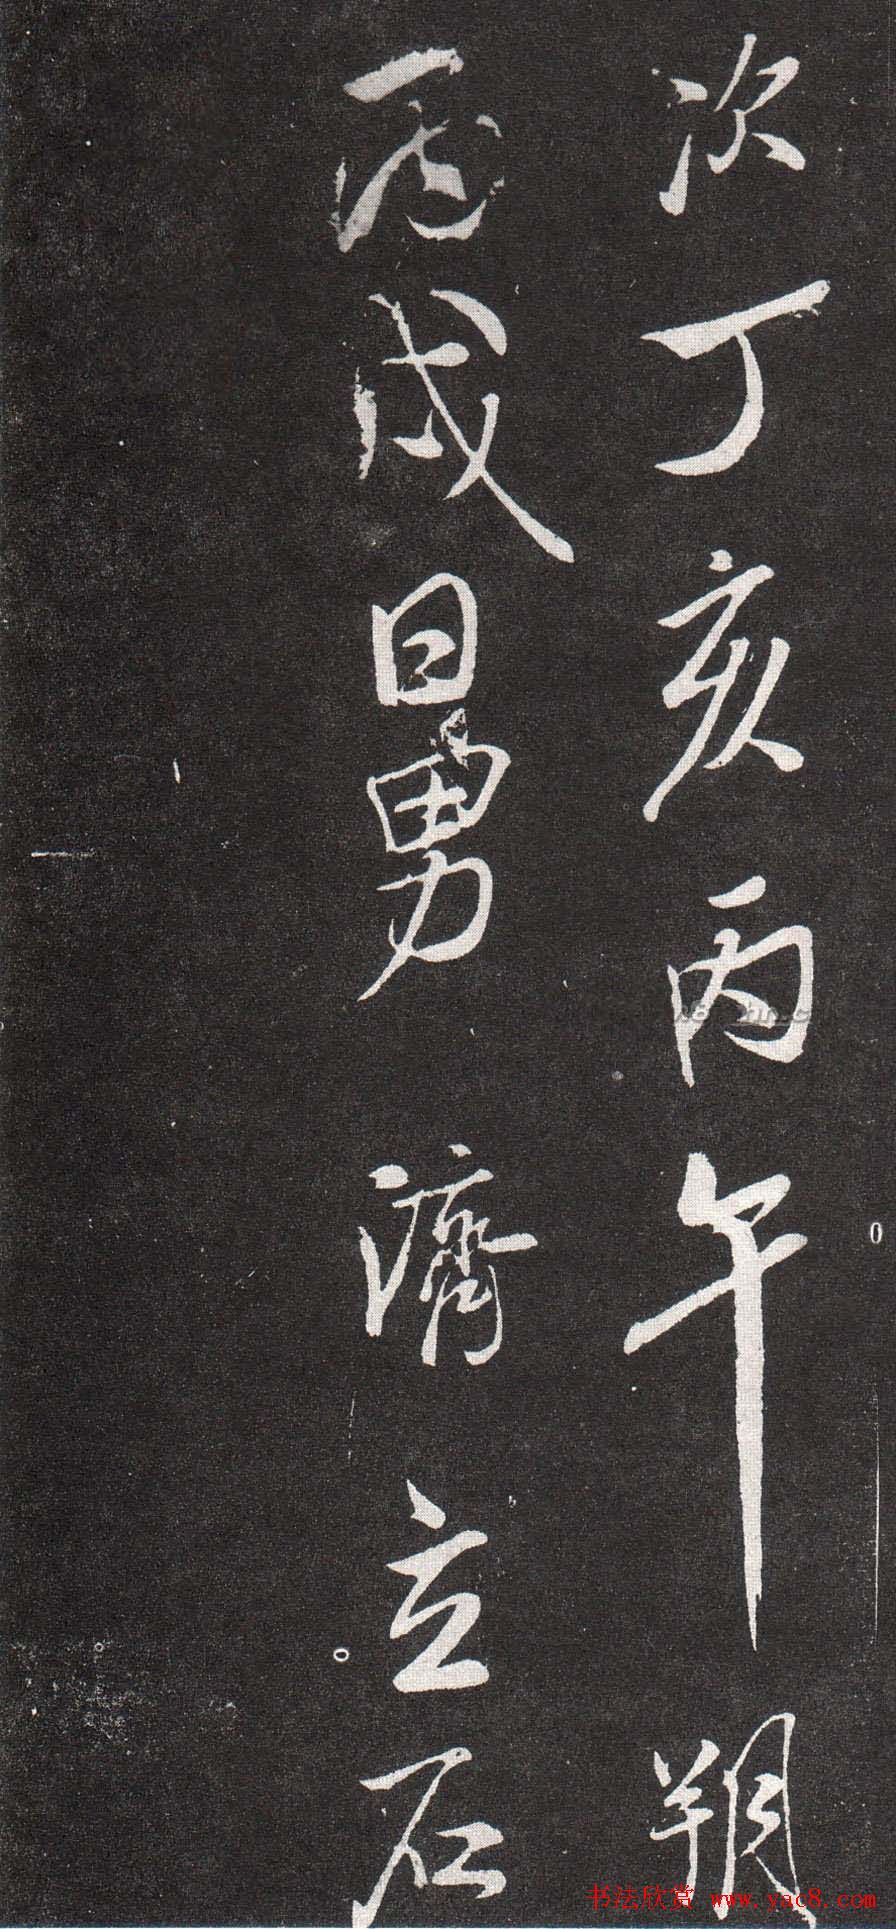 次丁亥丙午朔
戌日男濟立石
书法欣赏 www.yac8.com